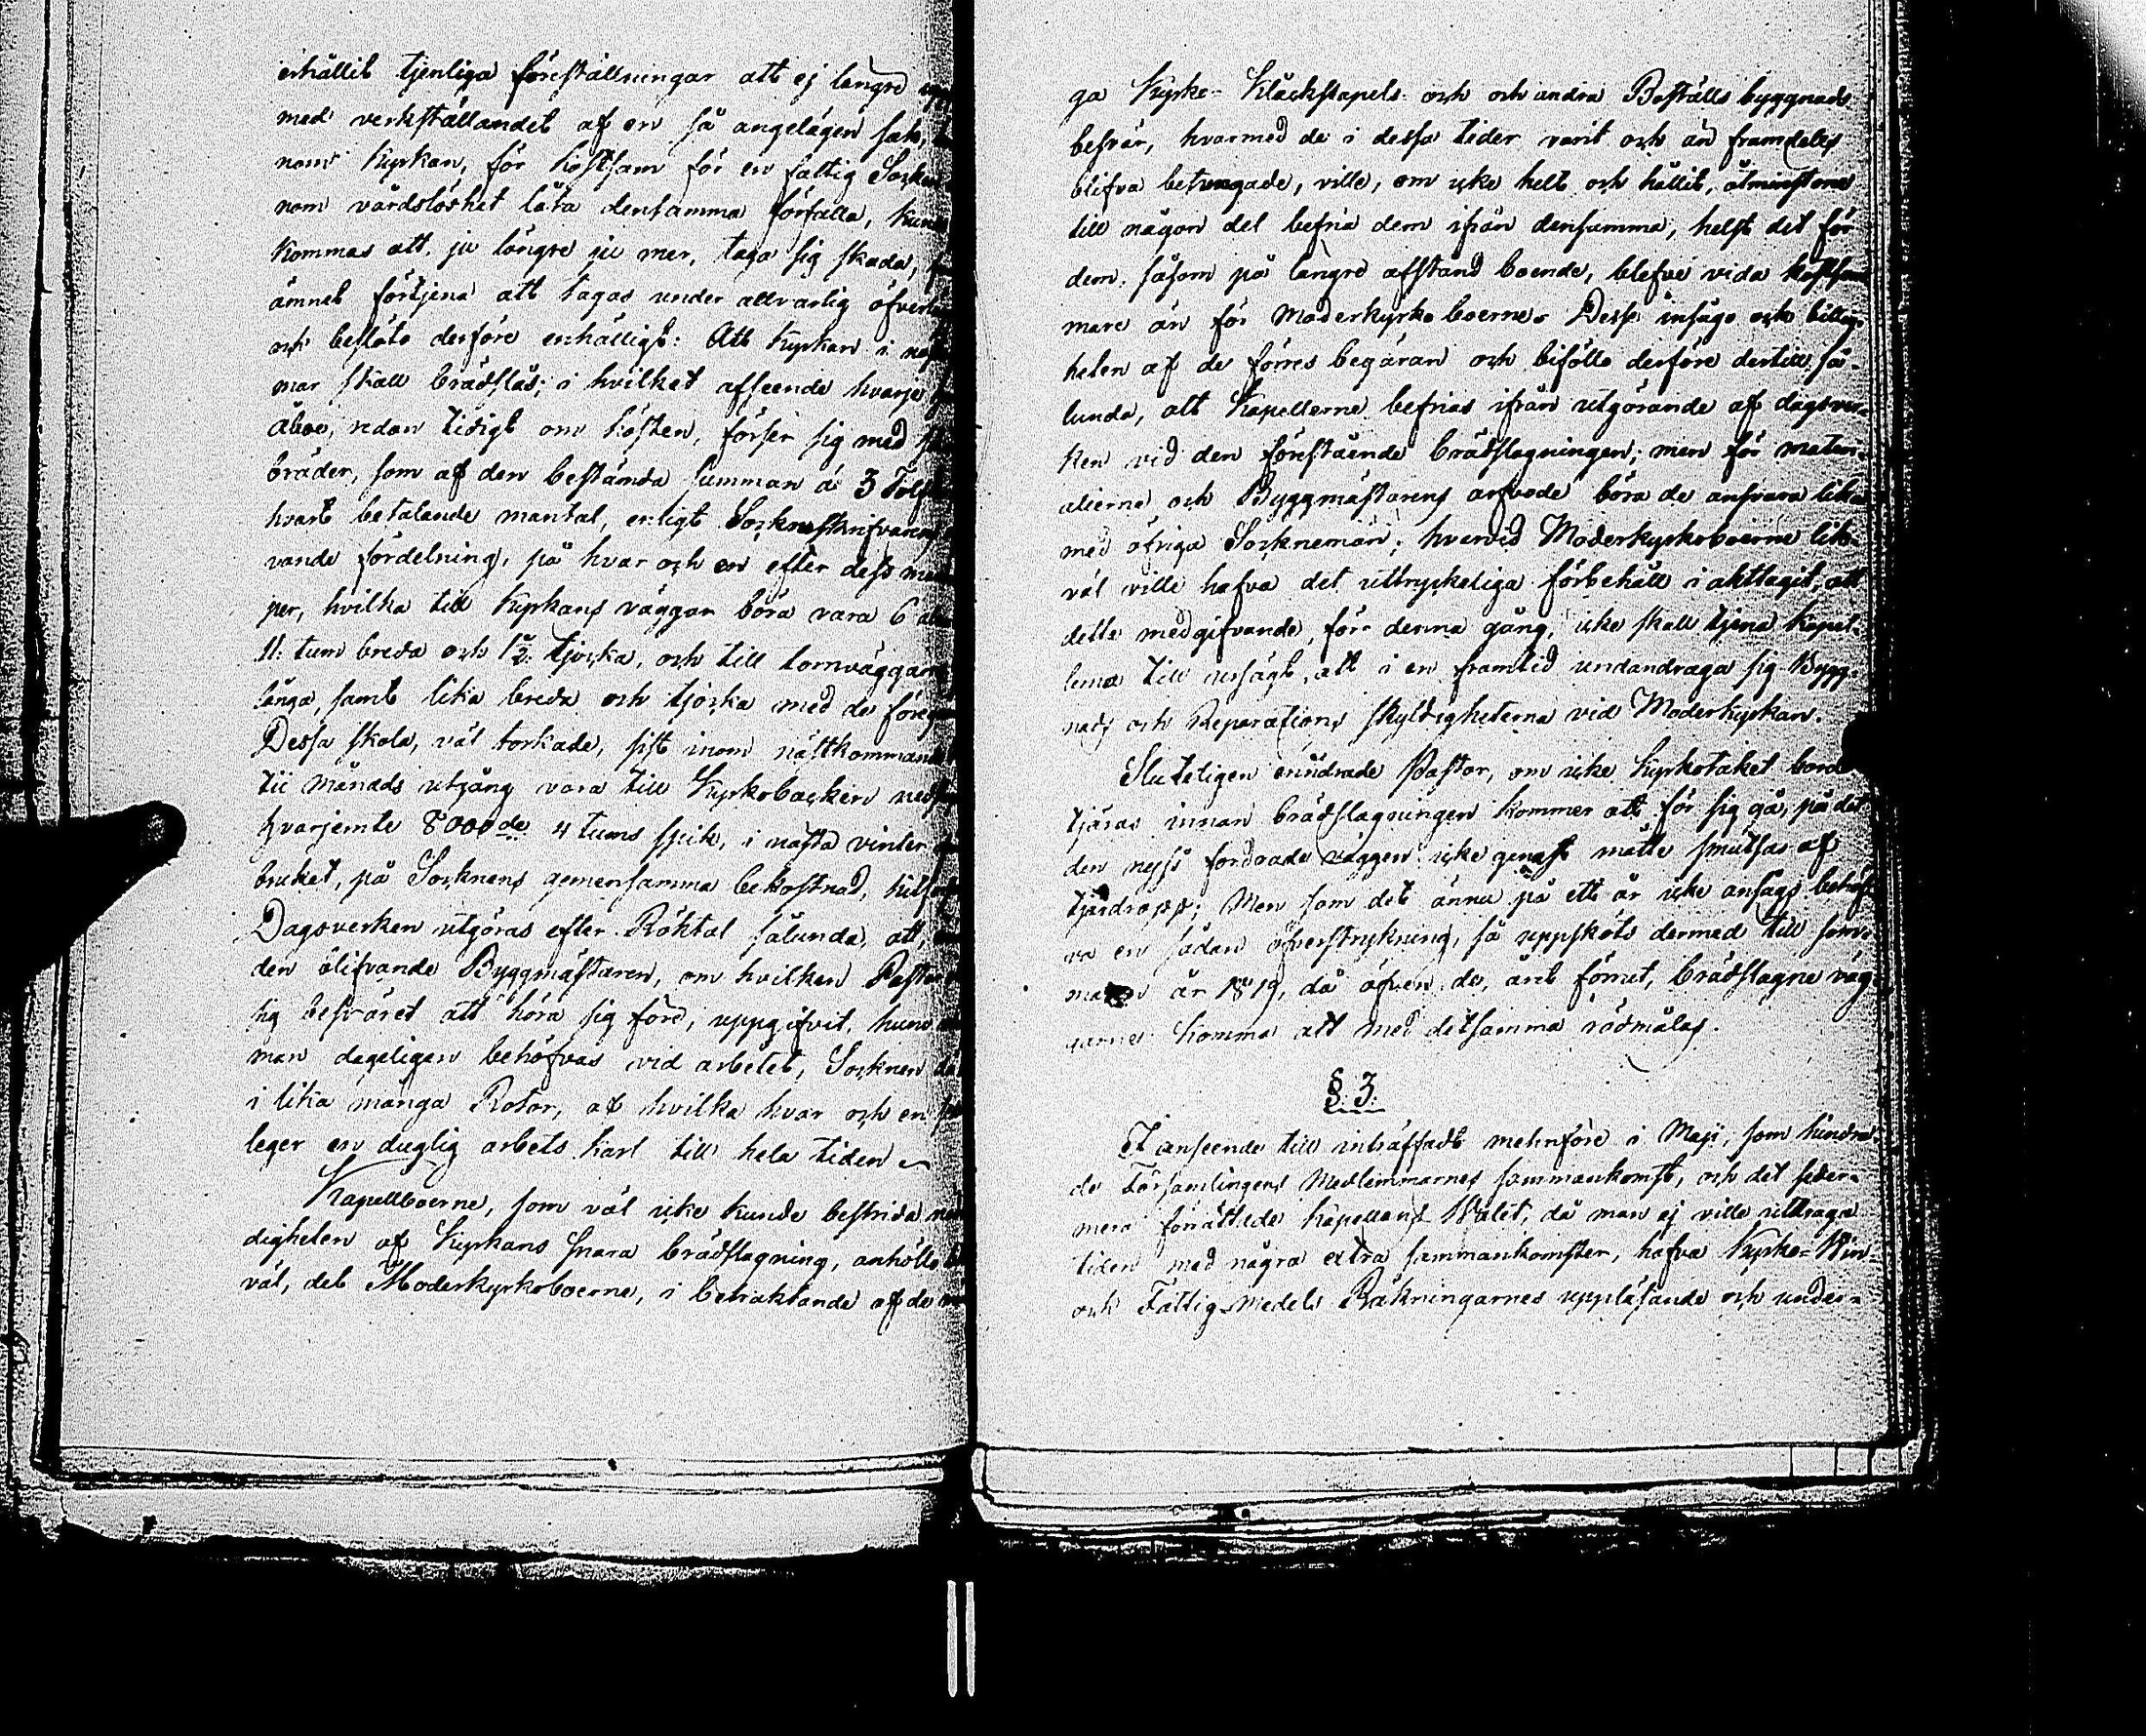 erhållit tjenliga föreställningar att ej längre
med verkställandet af en så angelägen sak,
nom Kyrkan, för kostsam för en fattig Socken
nom vårdslöshet låta densamma förfalla,
kommas att, ju längre ju mer, taga sig skada,
ämnet förtjena att tagas under allvarlig
och beslöto derföre enhälligt: Att Kyrkan i
mar skall brädslås; i hvilket afseende hvarje
åboe, redan tidigt om hösten, förser sig med
bräder, som af den bestämda summan à 3 Tolfter
hvart betalande mantal, enligt Sockneskrifvarens
vande fördelning, på hvar och en efter dess
per, hvilka till Kyrkans väggar böra vara 6
11. tum breda och 1½ tjocka, och till tornväggarne
långa, samt lika breda och tjocka med de
Dessa skola, väl torkade, sist inom nästkommande
tii månads utgång vara till Kyrkobacken
hvarjemte 8000de 4 tums spik, i nästa vinter
bruket, på Socknens gemensamma bekostnad,
Dagsverken utgöras efter Röktal sålunda, att,
den blifvande Byggmästaren, om hvilken Pastor
sig besväret att höra sig före, uppgifvit, huru
man dageligen behöfvas vid arbetet, Socknen
i lika många Rotor, af hvilka hvar och en
leger en duglig arbets karl till hela tiden
Kapellboerne, som väl icke kunde bestrida
digheten af Kyrkans snara brädslagning, anhöllo
väl, det Moderkyrkoboerne, i betraktande af de
ga Kyrko- Klåckstapels- och och andra Boställs byggnads
besvär, hvarmed de i dessa tider varit och än framdeles
blifva betungade, ville, om icke helt och hållit, åtminstone
till någon del befria dem ifrån densamma, helst det för
dem, såsom på längre afstånd boende, blefve vida kostsam
mare än för Moderkyrkoboerne. Desse insågo och billig-
heten af de förres begäran och biföllo derföre dertill så-
lunda, att Kapellerne befrias ifrån utgörande af dagsver-
ken vid den förestående brädslagningen; men för materi-
alierne och Byggmästarens arfvode böra de ansvara lika
med öfriga Socknemän; hvarvid Moderkyrkoboerne lik-
väl ville hafva det uttryckeliga förbehåll i akttagit, att
detta medgifvande, för denna gång, icke skall tjena Kapel-
lerna till ursägt, att i en framtid undandraga sig Bygg-
nads och Reparations skyldigheterna vid Moderkyrkan.
Sluteligen erindrade Pastor, om icke Kyrkotaket borde
tjäras innan brädslagningen kommer att för sig gå, på det
den nyss fordrade väggen icke genast måtte smutsas af
tjärdropp; Men som det ännu på ett år icke ansågs behöf-
va en sådan öfverstrykning, så uppsköts dermed till som-
maren år 1819, då äfven de, året förut, brädslagne väg-
garne komma att med detsamma rödmålas.
§. 3.
I anseende till inträffadt mehnföre i Maji, som hindra-
de Församlingens Medlemmarnes sammankomst, och det seder-
mera förrättade Kapellans Valet, då man ej ville uttraga
tiden med några extra sammankomster, hafva Kyrko- Win-
och Fattig-Medels Räkningarnes uppläsande och under-